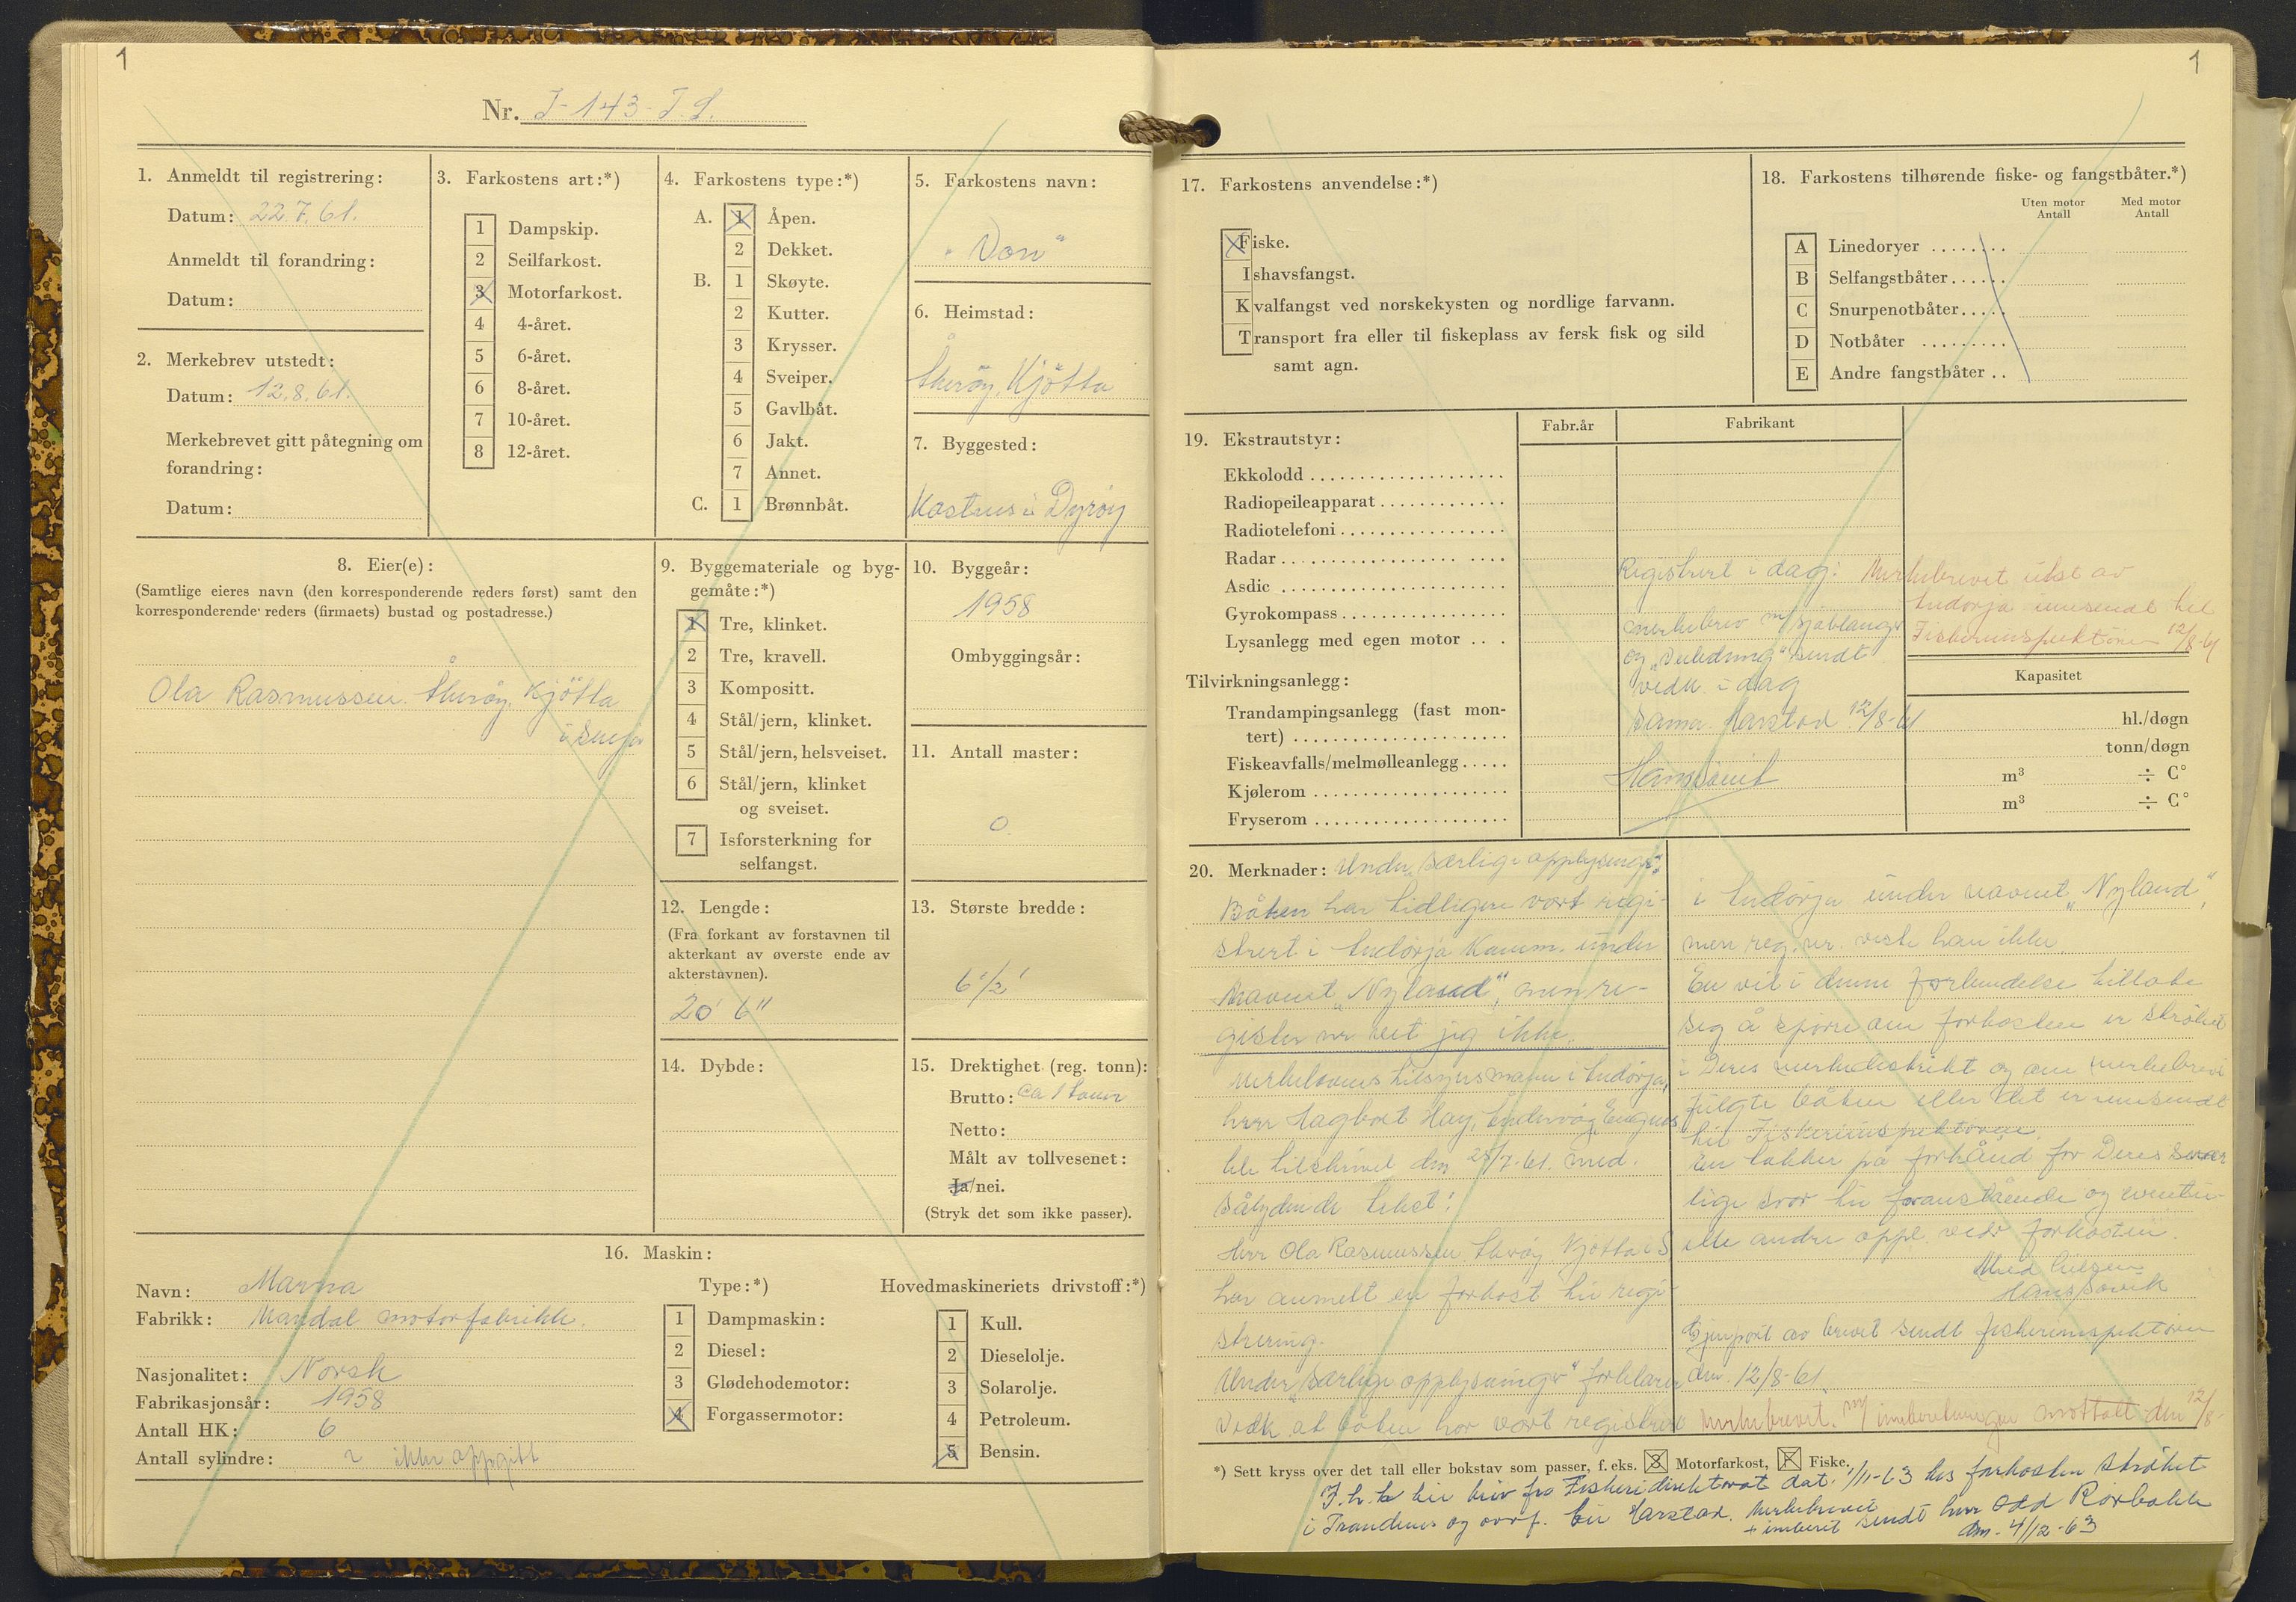 1
Nr. T-143-T.S.
1. Anmeldt til registrering:
Datum: 22.7.61.
Anmeldt til forandring:
Datum:
2. Merkebrev utstedt:
Datum: 12.8.61.
Merkebrevet gitt påtegning om
forandring:
Datum:
3. Farkostens art:*)
1 Dampskip.
2 Seilfarkost.
3 Motorfarkost.
4 4-året.
5 6-året.
6 8-året.
7 10-året.
8 12-året.
4. Farkostens type:*)
A. 1 Åpen.
2 Dekket.
B. 1 Skøyte.
2 Kutter.
3 Krysser.
4 Sveiper.
5 Gavlbåt.
6 Jakt.
7 Annet.
C. 1 Brønnbåt.
5. Farkostens navn:
"Von"
6. Heimstad:
Åkerøy, Kjøtta
7. Byggested:
Kastnes i Dyrøy
8. Eier(e):
(Samtlige eieres navn (den korresponderende reders først) samt den
korresponderende reders (firmaets) bustad og postadresse.)
Ola Rasmussen. Åkerøy, Kjøtta
i Senja
9. Byggemateriale og byg-
gemåte:*)
1 Tre, klinket.
2 Tre, kravell.
3 Kompositt.
4 Stål/jern, klinket.
5 Stål/jern, helsveiset.
6 Stål/jern, klinket
og sveiset.
7 Isforsterkning for
selfangst.
10. Byggeår:
1958
Ombyggingsår:
11. Antall master:
0.
12. Lengde:
(Fra forkant av forstavnen til
akterkant av øverste ende av
akterstavnen).
20' 6"
13. Største bredde:
6 1/2'
14. Dybde:
15. Drektighet (reg. tonn):
Brutto: ca 1 tonn
Netto:
Målt av tollvesenet:
Ja/nei.
(Stryk det som ikke passer).
16. Maskin:
Navn: Marna
Fabrikk: Mandal motorfabrikk.
Nasjonalitet: Norsk
Fabrikasjonsår: 1958
Antall HK: 6
Antall sylindre: ikke oppgitt
Type:*)
1 Dampmaskin:
2 Diesel:
3 Glødehodemotor:
4 Forgassermotor:
Hovedmaskineriets drivstoff:*)
1 Kull.
2 Dieselolje.
3 Solarolje.
4 Petroleum.
5 Bensin.
1
17. Farkostens anvendelse:*)
Fiske.
Ishavsfangst.
Kvalfangst ved norskekysten og nordlige farvann.
Transport fra eller til fiskeplass av fersk fisk og sild
samt agn.
18. Farkostens tilhørende fiske- og fangstbåter.*)
Uten motor
Antall
Med motor
Antall
A Linedoryer ........
B Selfangstbåter......
C Snurpenotbåter.....
D Notbåter .........
E Andre fangstbåter ..
19. Ekstrautstyr:
Fabr.år
Fabrikant
Ekkolodd
Radiopeileapparat
Radiotelefoni
Radar
Asdic
Gyrokompass
Lysanlegg med egen motor
Tilvirkningsanlegg:
Trandampingsanlegg (fast mon-
tert)
Fiskeavfalls/melmølleanlegg
Kjølerom
Fryserom
Registrert i dag:
merkebrev m/sjøblanger
og "Veiledning" sendt
vedk. i dag
Sama. Harstad 12/8-61
Hans Søvik
Merkebrevet utst av
Andørja innsendt til
Fiskeriinspektøren 12/8-61
Kapasitet
hl./døgn
tonn/døgn
m³ ÷ C°
m³ ÷ C°
20. Merknader: Under særlige opplysinger:
Båten har tidligere vort regi-
strert i Andørja Komm. under
navnet "Nyland", men re-
gister nr veit jeg ikke.
Merkelovens tilsynsmann i Andørja,
herr Hagbart Hay, Engenes
ble tilskrivet den 28/7-61. med
sålydende tekst:
Herr Ola Rasmussen Åkerøy Kjøtta i S
har anmelt en farkost til regi-
strering.
Under "særlige opplysninger" forklarer
vedk. at båten har vort registrert
i Andørja under navnet "Nyland",
men reg. nr. veste han ikke.
En vil i denne forbindelse tillate
seg å spørre om farkosten er strøket
i Deres merkedistrikt og om merkebrevet
fulgte båten eller det er innsendt
til Fiskeriinspektøren.
En takker på forhånd for Deres snar-
lige svar til foranstående og eventu-
elle andre oppl. vedr farkosten.
Med hilsen
Hans Søvik
Gjenpart av brevet sendt fiskeriinspektøren
den. 12/8-61.
Merkebrevet. m/ innberetninger mottatt den 12/8-
*) Sett kryss over det tall eller bokstav som passer, f. eks. 3 Motorfarkost, F Fiske.
I.h.t. til brev fra Fiskeridirektorat dat. 1/11-63 les farkosten strøket
i Trondenes og overf. til Harstad. Merkebrevet
+ innberit sendt herr Odd Rorbakk
den. 4/12-63